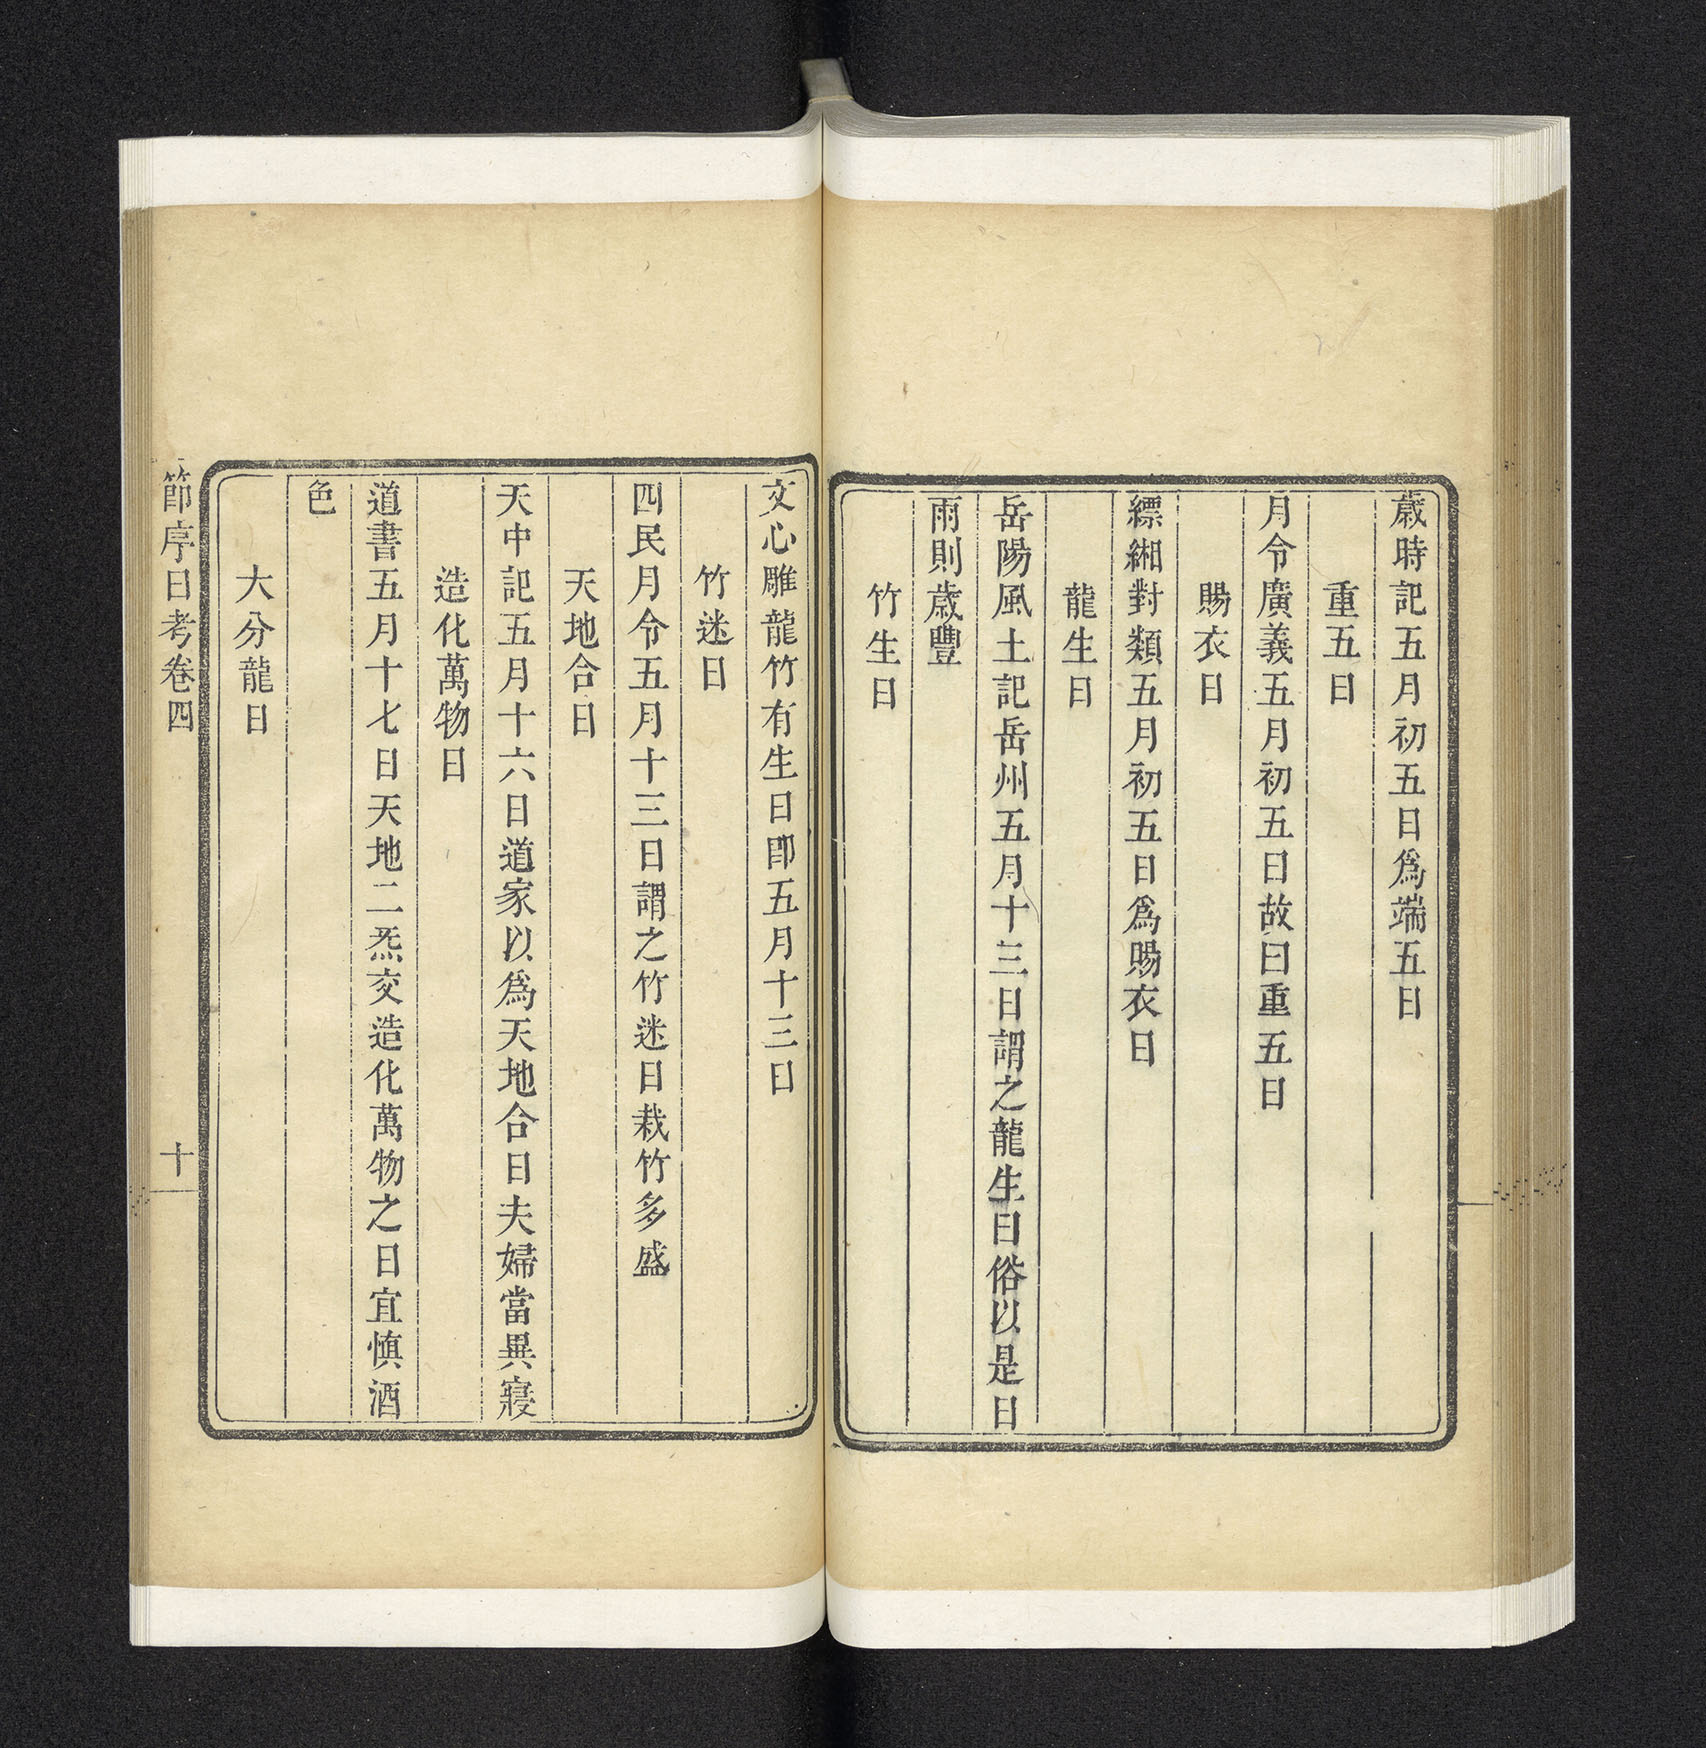 歲時記五月初五日爲端五日
重五日
月令廣義五月初五日故曰重五日
賜衣日
縹緗對類五月初五日爲賜衣日
龍生日
岳陽風土記岳州五月十三日謂之龍生日俗以是日
雨則歲豐
竹生日
文心雕龍竹有生日卽五月十三日
竹迷日
四民月令五月十三日謂之竹迷日栽竹多盛
天地合日
天中記五月十六日道家以爲天地合日夫婦當異寢
造化萬物日
道書五月十七日天地二炁交造化萬物之日宜慎酒
色
大分龍日
節序日考卷四
十